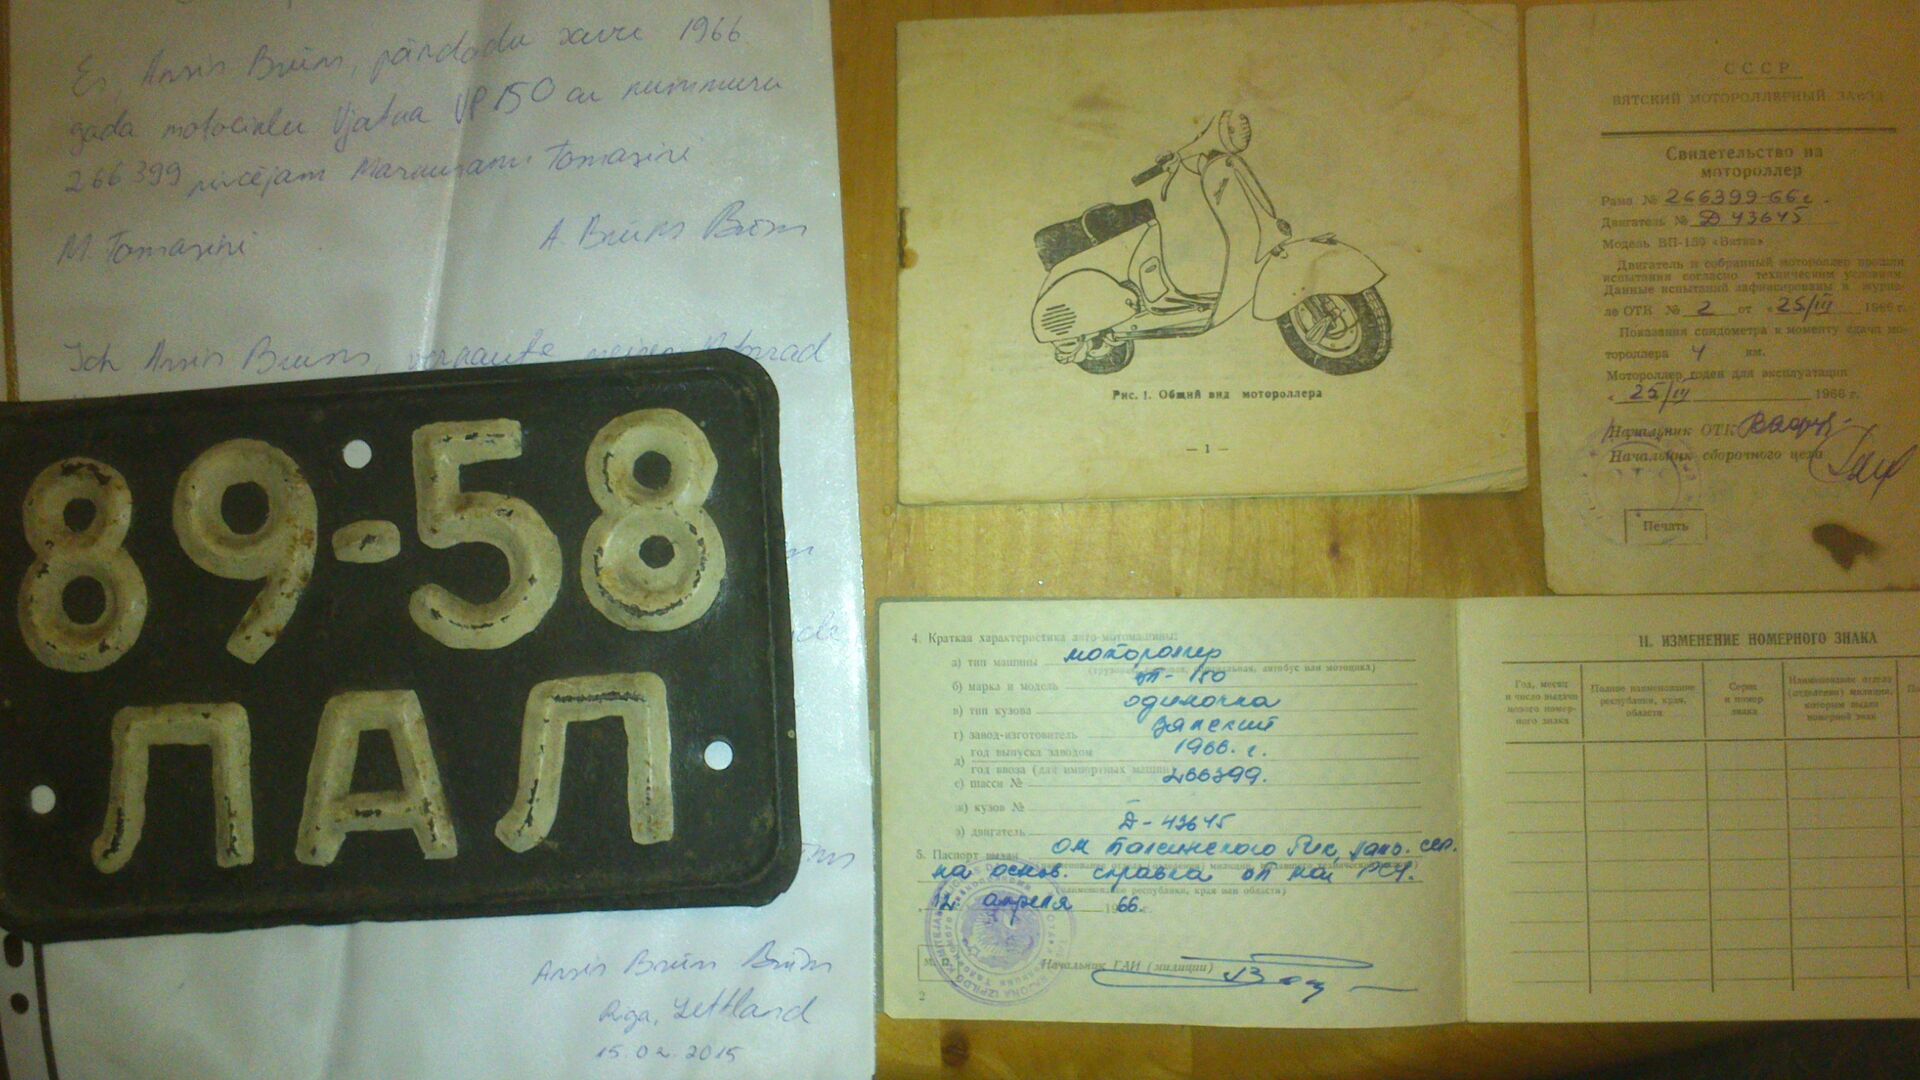 Es, Ansis Brūns, pārdodu savu 1966.
gada motociklu Vjatka VP150 ar nummuru
266399 pircējam Tomasini
M. Tomasini
A. Brūns
Ich, Ansis Bruns, verkaufte
89-58
ЛАЛ
Ansis Brūns
Riga, Lettland
15.02.2015
Рис. 1. Общий вид мотороллера
— 1 —
СССР
ВЯТСКИЙ МОТОРОЛЛЕРНЫЙ ЗАВОД
Свидетельство на
мотороллер
Рама № 266399-66г.
Двигатель № Д 43645
Модель ВП-150 «Вятка»
Двигатель и собранный мотороллер прошли
испытания согласно техническим условиям.
Данные испытаний зафиксированы в журна-
ле ОТК № 2 от «25/III 1966 г.
Показания спидометра к моменту сдачи мо-
тороллера 4 км.
Мотороллер годен для эксплуатации
« 25/III 1966 г.
Начальник ОТК
Начальник сборочного цеха
Печать
4. Краткая характеристика авто-мотомашины:
а) тип машины мотороллер
(грузовая, легковая, специальная, автобус или мотоцикл)
б) марка и модель ВП-150
в) тип кузова одиночка
г) завод-изготовитель Вятский
д) год выпуска заводом 1966. г.
год ввоза (для импортных машин)
е) шасси № 266399.
ж) кузов №
з) двигатель Д-43645
5. Паспорт выдан
на основ. справка от
(наименование республики, края или области)
12 апреля 1966. г.
Начальник ГАИ (милиции)
2
II. ИЗМЕНЕНИЕ НОМЕРНОГО ЗНАКА
Год, месяц
и число выдачи
нового номер-
ного знака
Полное наименование
республики, края,
области
Серия
и номер
знака
Наименование отдела
(отделения) милиции,
которым выдан
номерной знак